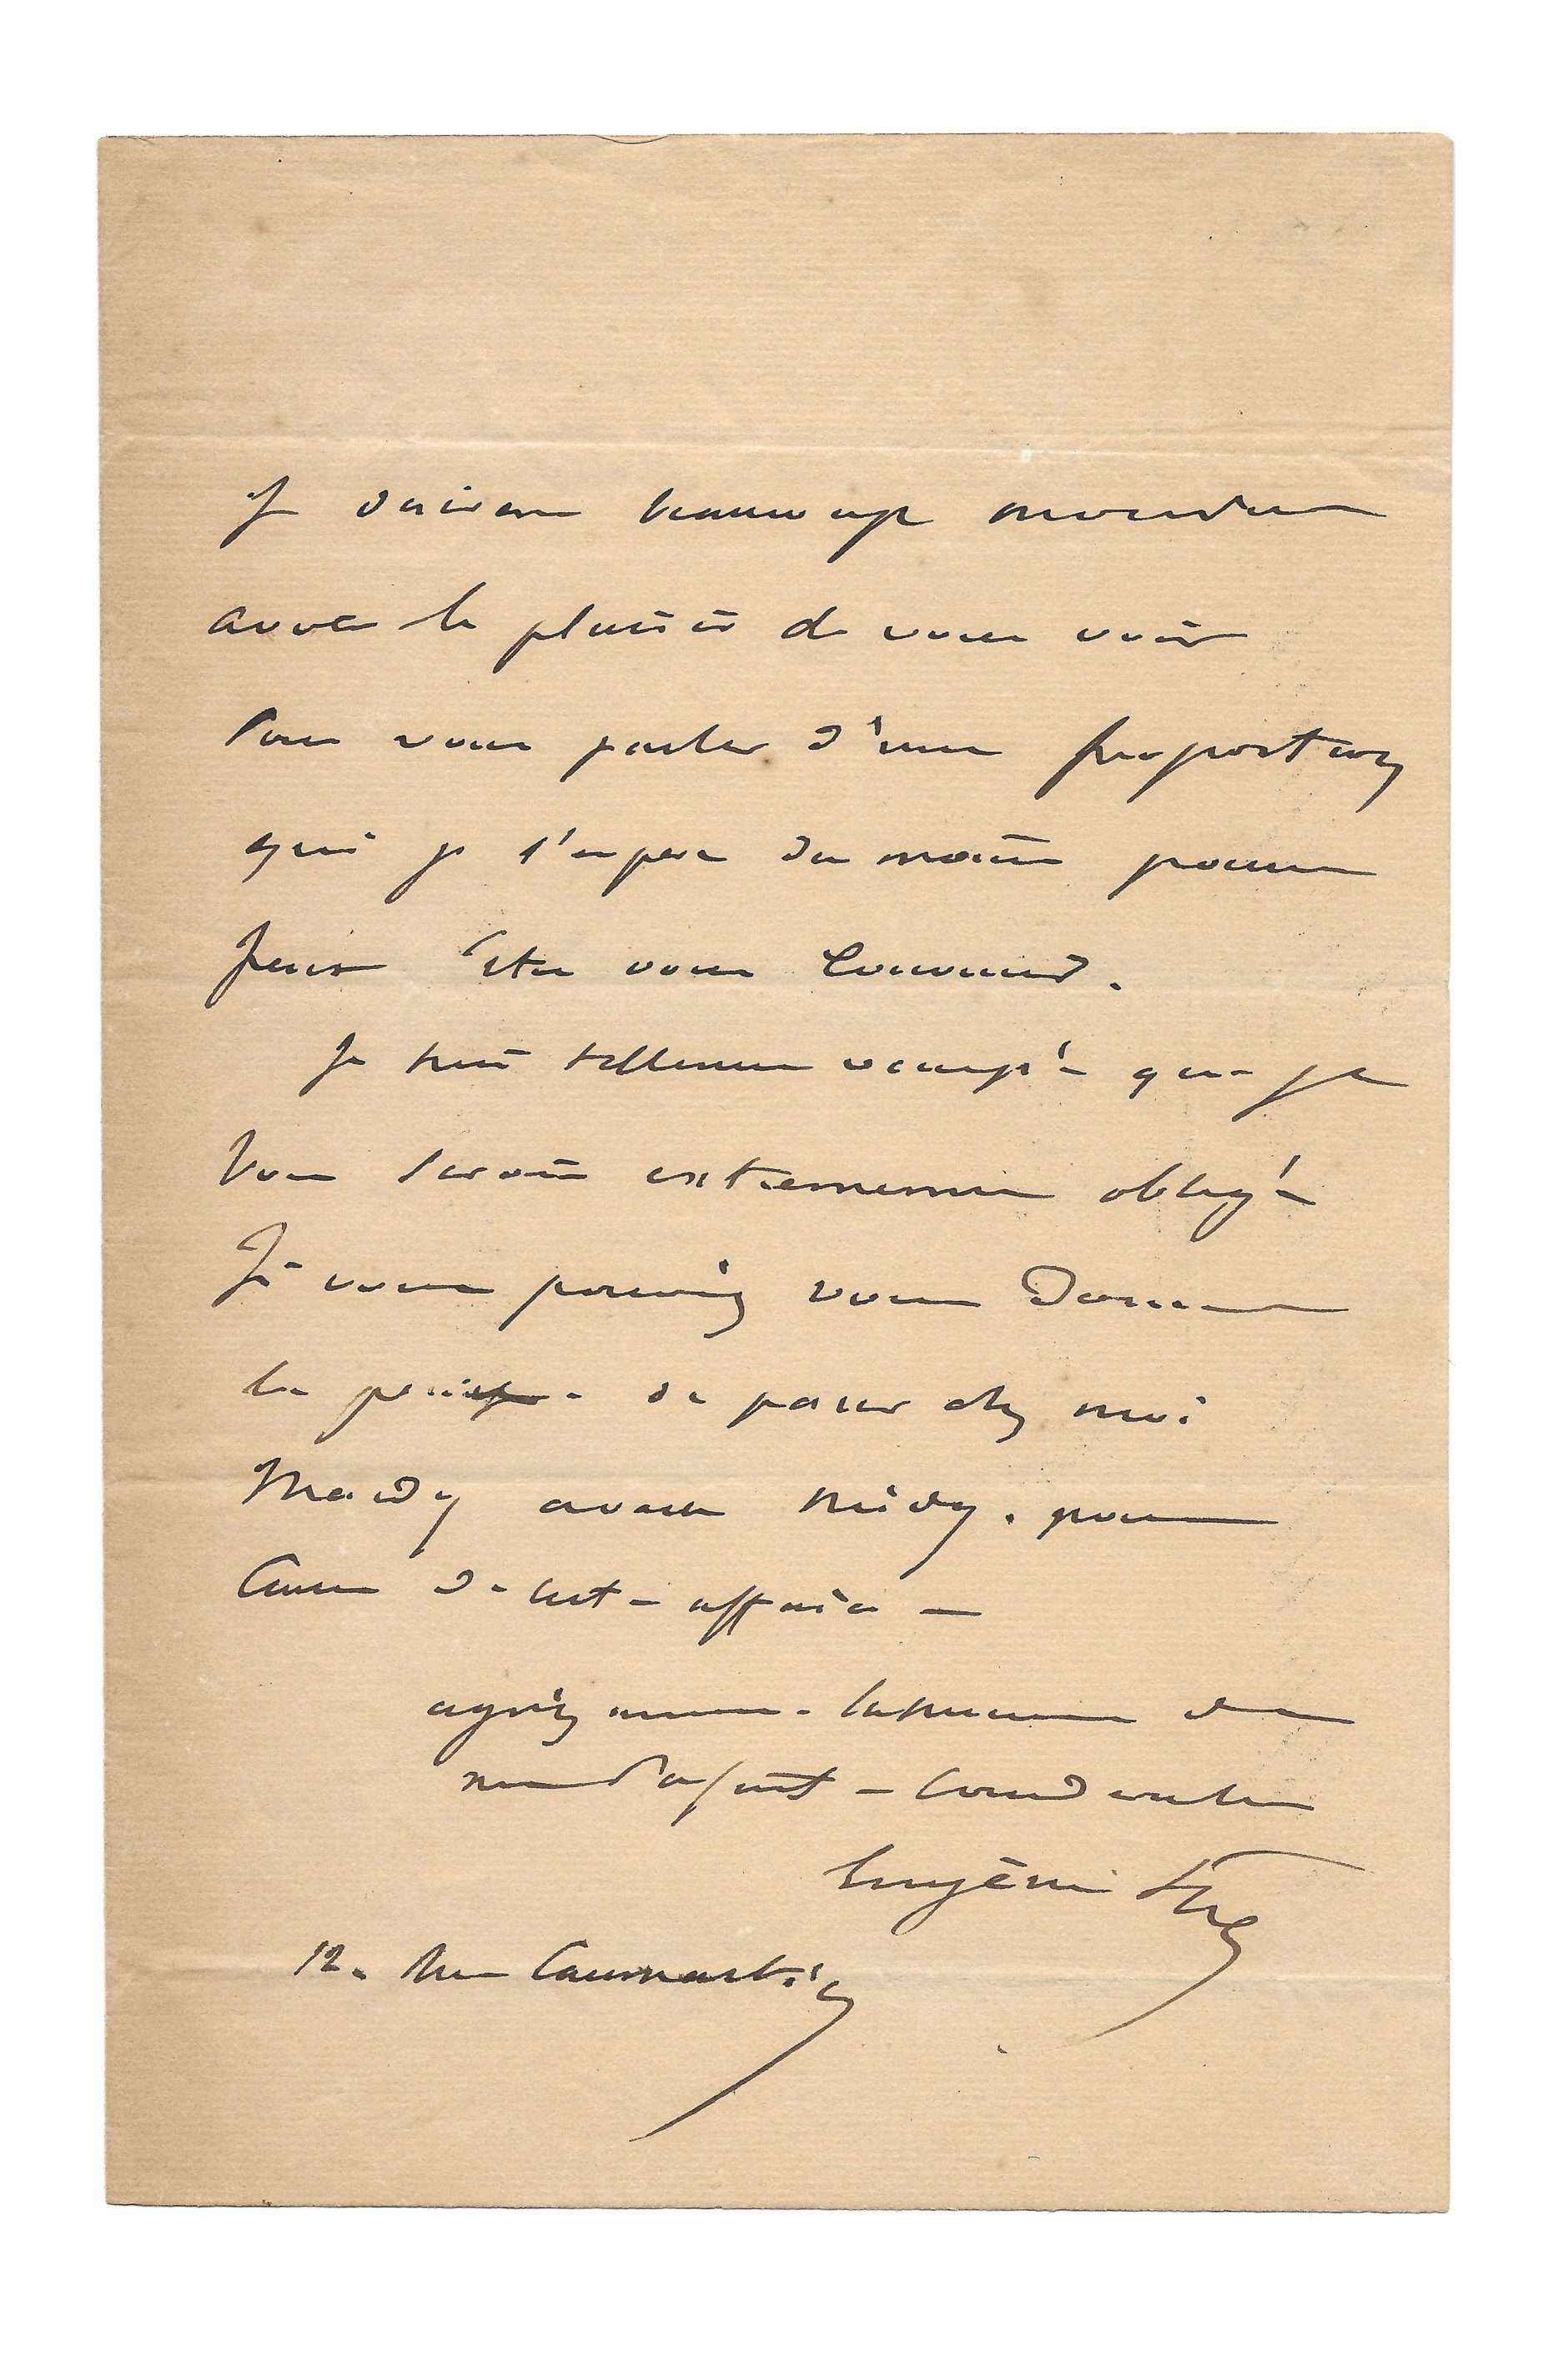 Je desirerais beaucoup monsieur
avoir le plaisir de vous voir
Pour vous parler d'une proposition
qui je l'espere du moins pourra
peut être vous convenir.
Je suis tellement occupé que je
Vous serais extremement obligé
Si vous pouviez vous donner
la peine de passer chez moi
Mardy avant midy. pour
Causer de cette affaire —
agréez monsieur l'assurance de
mes sentiments considération
Eugène Sue
12. Rue Caumartin